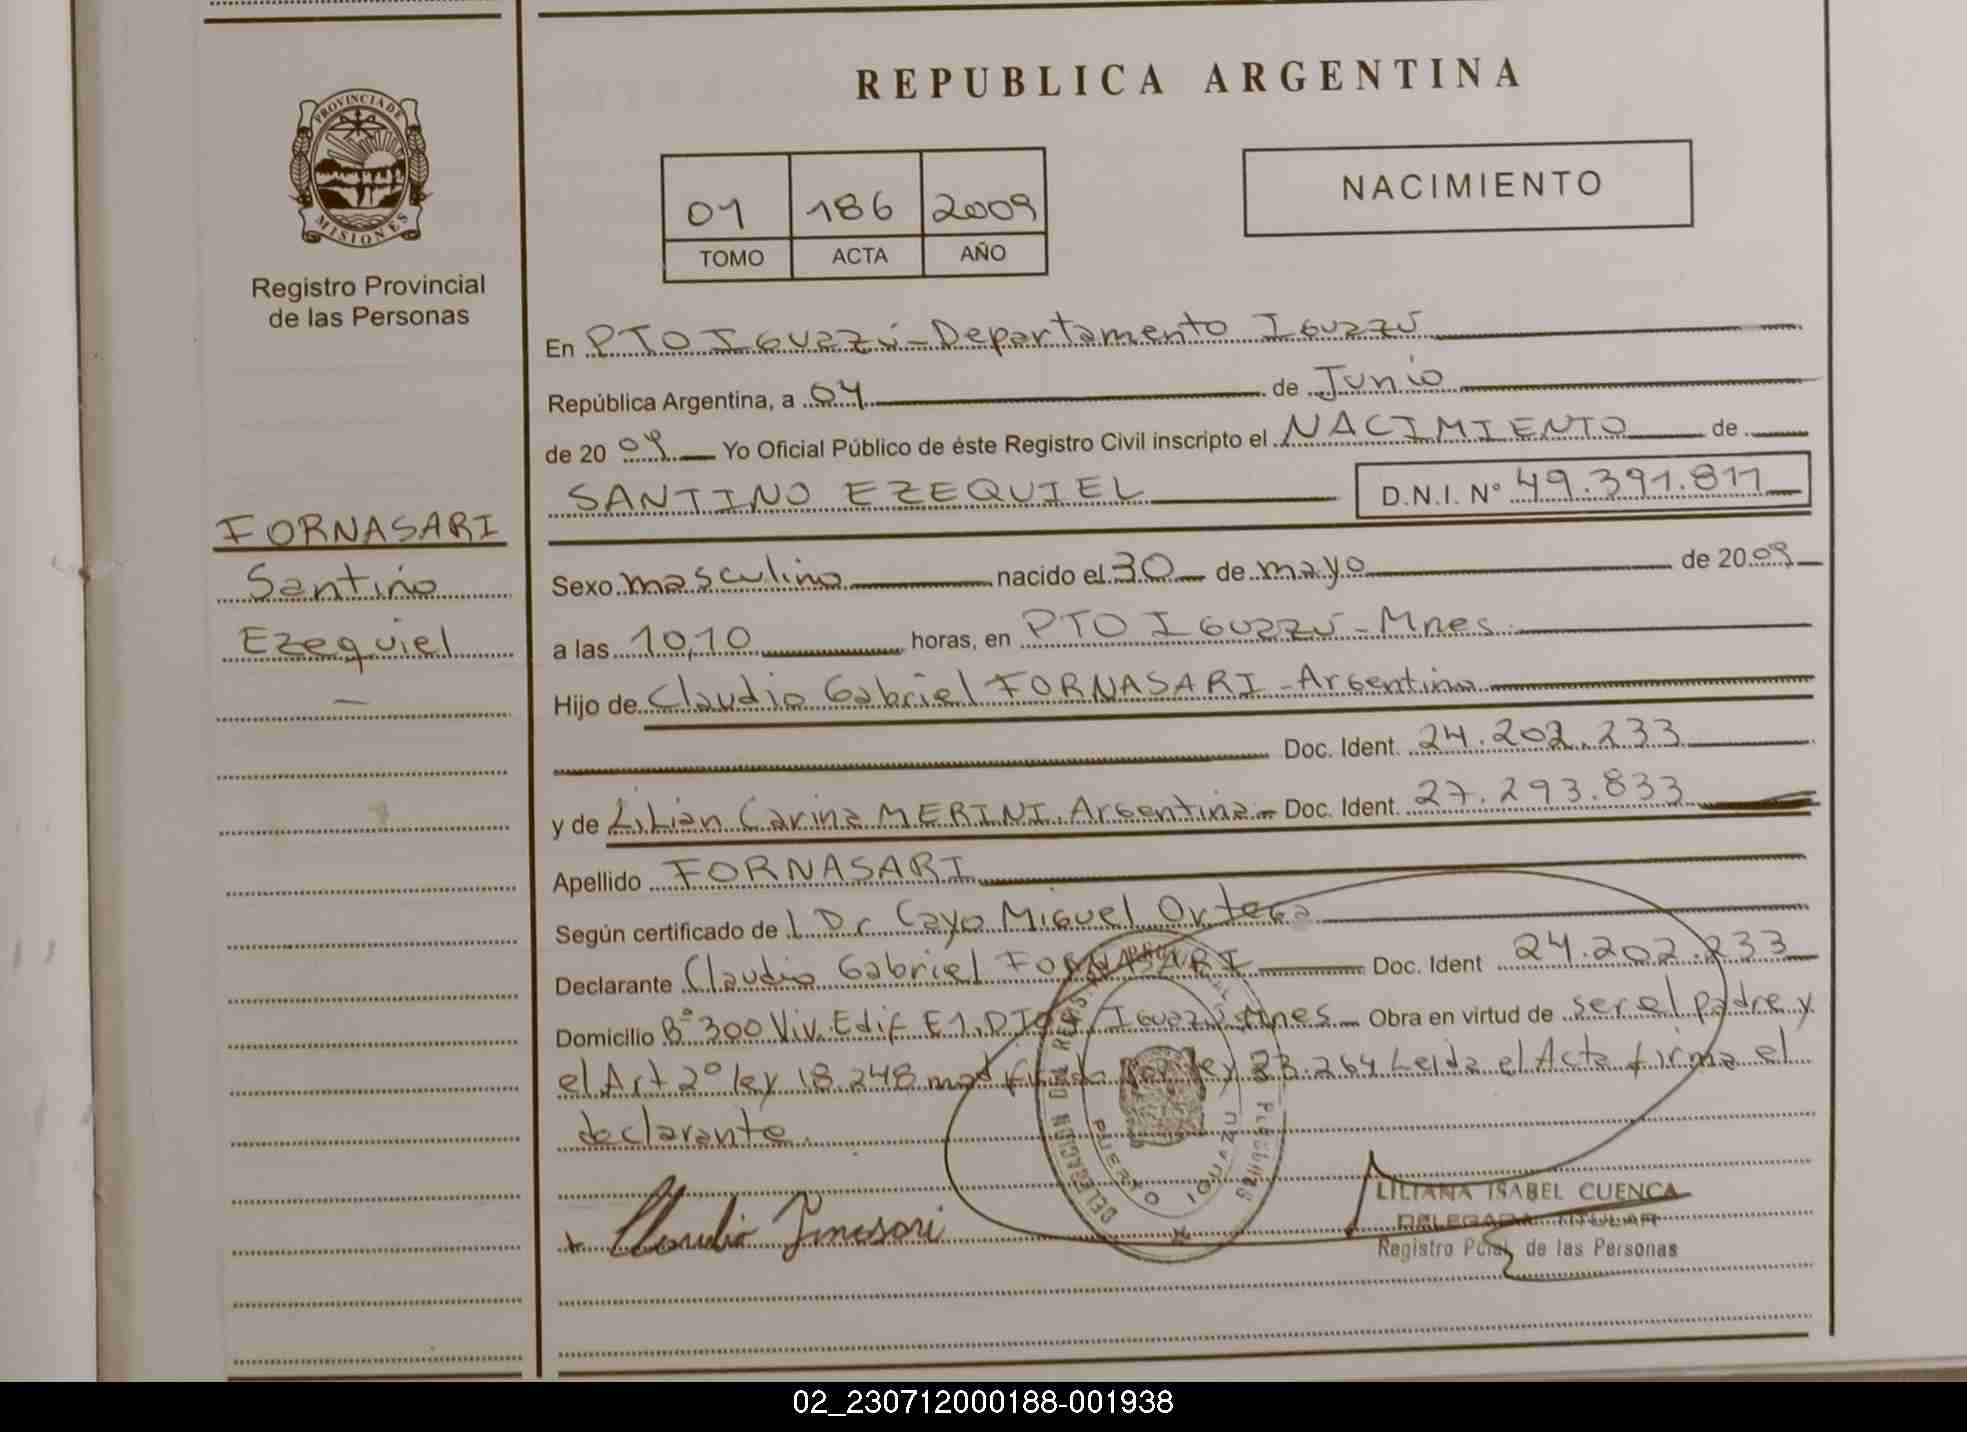 REPUBLICA ARGENTINA
PROVINCIA DE
MISIONES
Registro Provincial
de las Personas
01 186 2009
TOMO ACTA AÑO
NACIMIENTO
FORNASARI
Santino
Ezequiel
En PTO IGUAZÚ - Departamento IGUAZÚ
República Argentina, a 04 de Junio
de 2009 Yo Oficial Público de éste Registro Civil inscripto el NACIMIENTO de
SANTINO EZEQUIEL D.N.I. Nº 49.391.811
Sexo masculino nacido el 30 de mayo de 2009
a las 10,10 horas, en PTO IGUAZÚ - Mnes
Hijo de Claudio Gabriel FORNASARI - Argentino
Doc. Ident. 24.202.233
y de Lilian Carina MERINI. Argentina - Doc. Ident. 27.293.833
Apellido FORNASARI
Según certificado de l Dr Cayo Miguel Ortega
Declarante Claudio Gabriel FORNASARI Doc. Ident 24.202.233
Domicilio Bº 300 Viv. Edif E1. Iguazú Mnes - Obra en virtud de ser el padre y
el Art 2º ley 18.248 modificado por ley 23.264 Leida el Acta firma el
declarante.
DELEGACIÓN DEL REGISTRO PROVINCIAL DE LAS PERSONAS
PUERTO IGUAZU
LILIANA ISABEL CUENCA
DELEGADA TITULAR
Registro Pcial. de las Personas
02_230712000188-001938